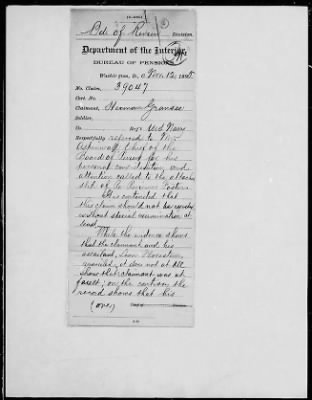 Bd. of Review Division.
Department of the Interior,
BUREAU OF PENSIONS,
Washington, D.C.
No. Claim, 39047
Cert. No.
Claimant, Herman
Soldier,
Co. Reg't U.S. Navy
Respectfully referred to Mr.
Aspinwall, Chief of the
Board of for his
personal consideration, and
attention called to the attached
It is contended that
this claim should not be
without special examination at
least.
While the evidence shows
that the claimant and his
assailant,
quarreled, it does not at all
show that claimant was at
fault; on the contrary the
record shows that his
(over)